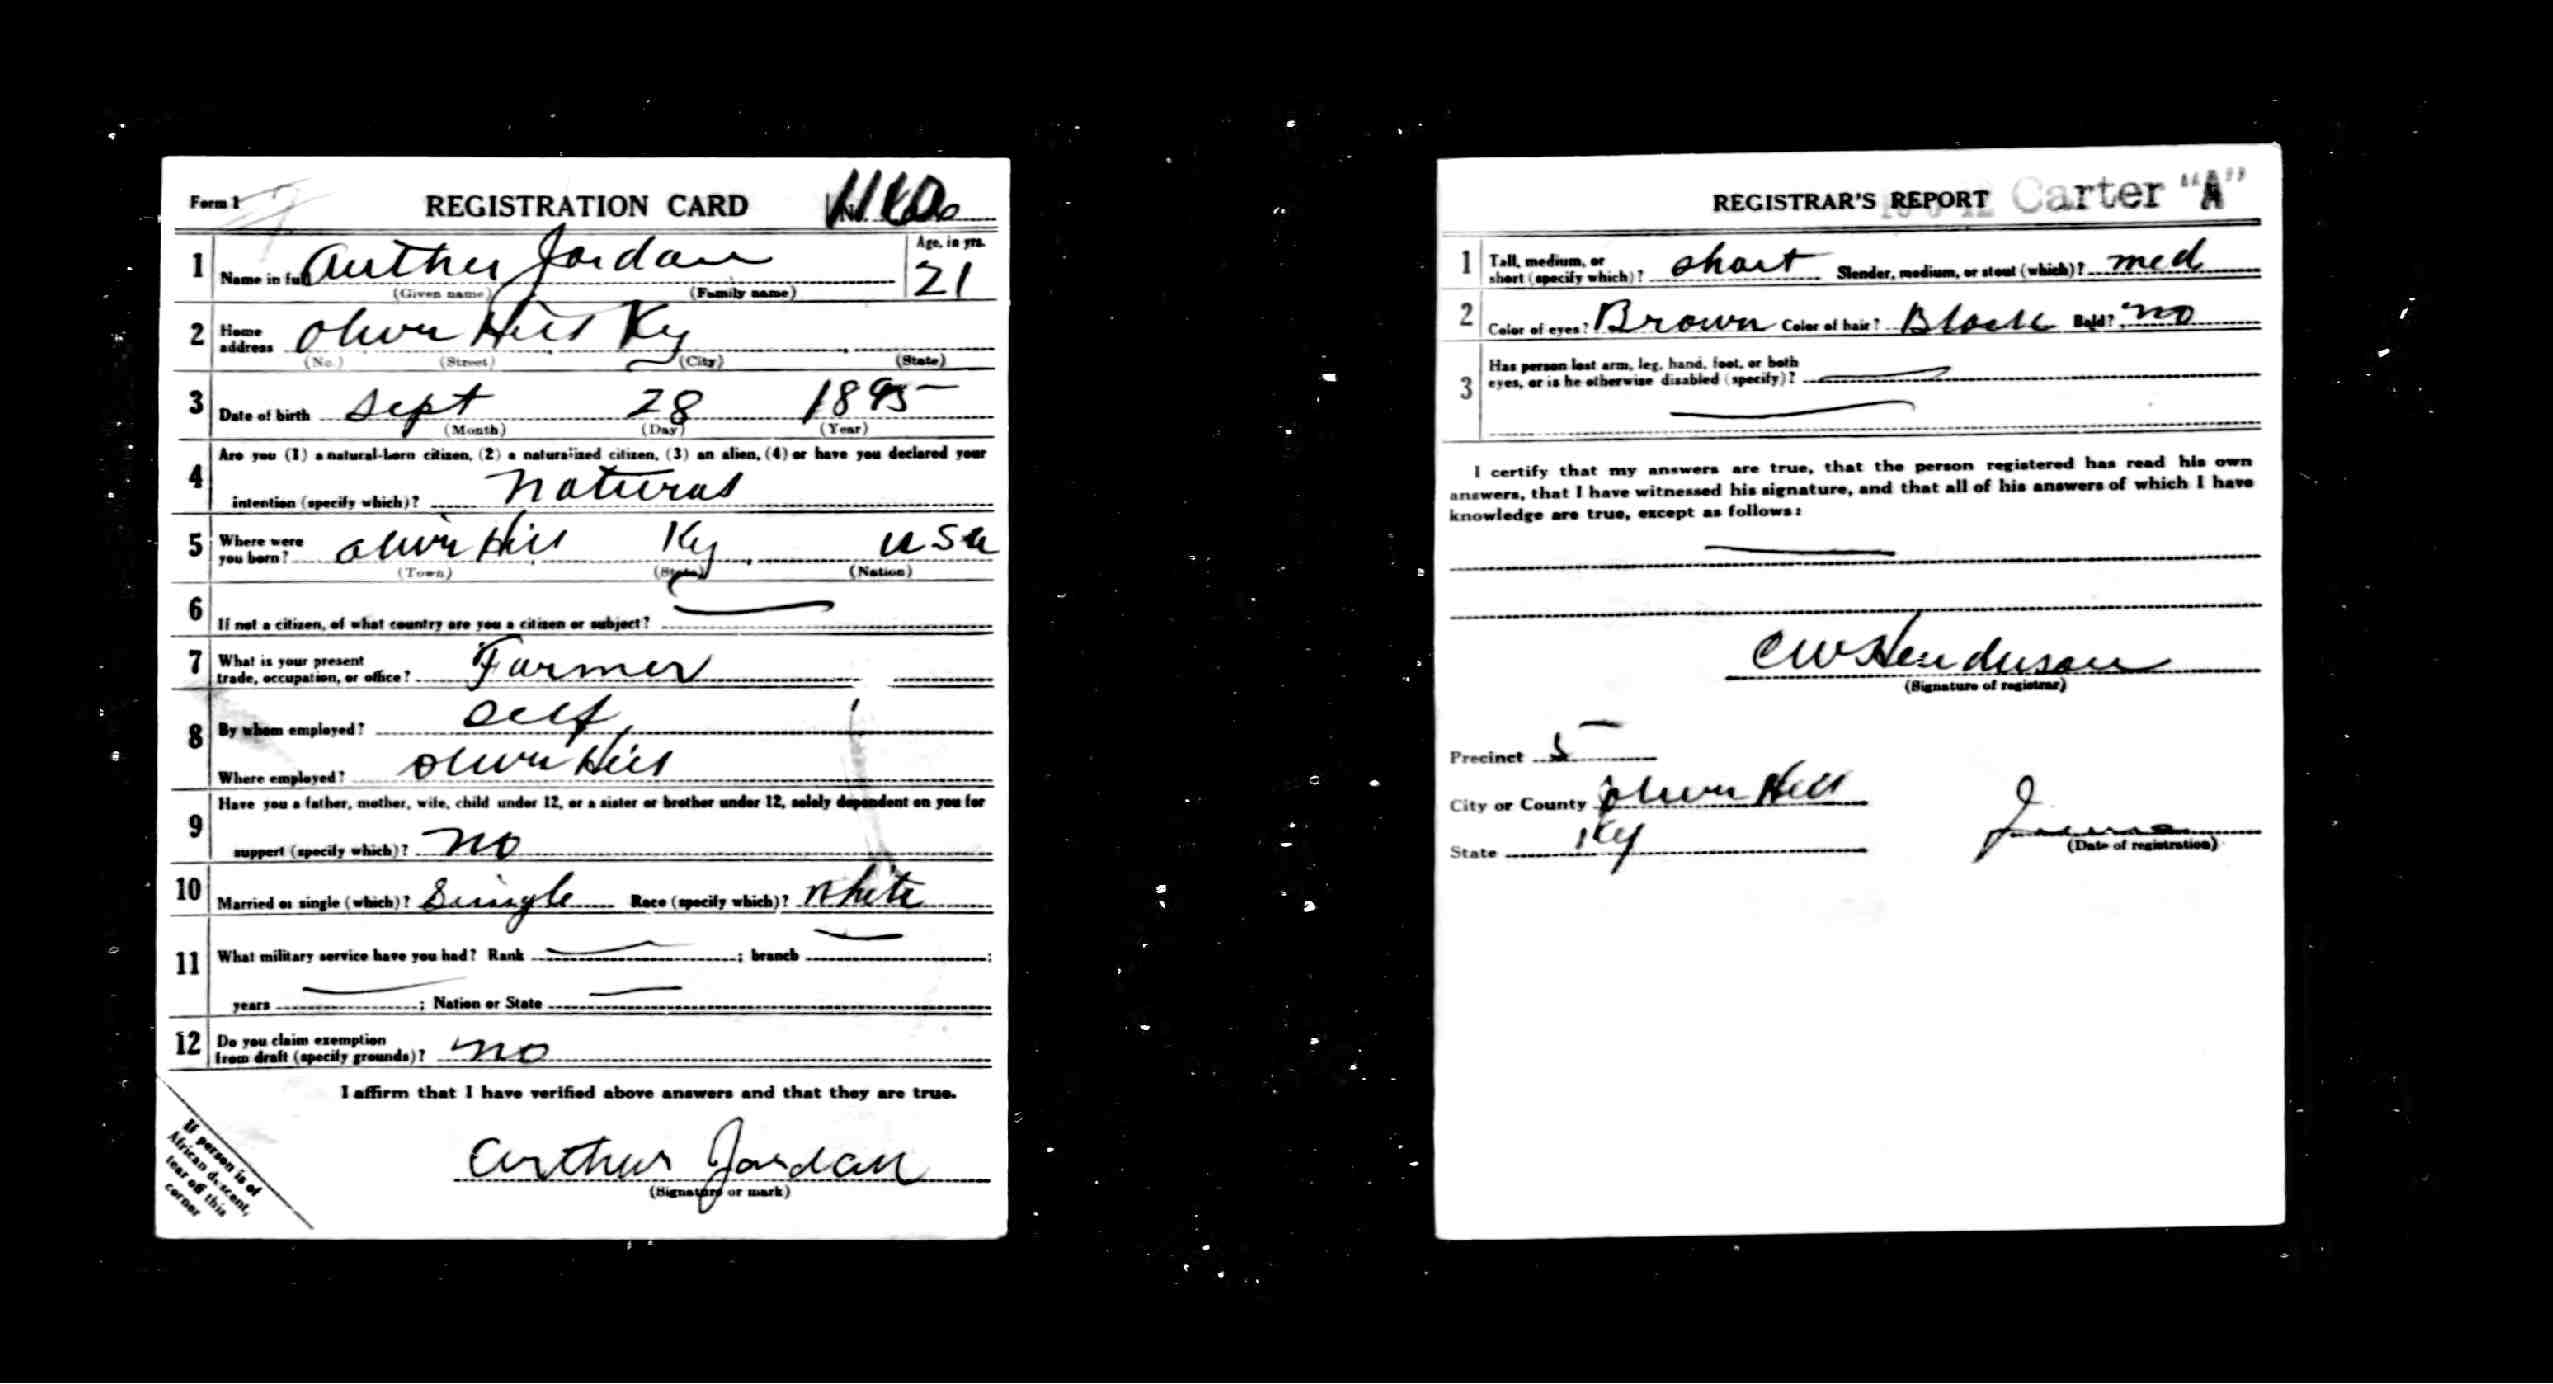 Form 1 REGISTRATION CARD No.
1 Name in full Arther Jordan Age, in yrs. 21
(Given name) (Family name)
2 Home address Olive Hill Ky
(No.) (Street) (City) (State)
3 Date of birth Sept 28 1895
(Month) (Day) (Year)
4 Are you (1) a natural-born citizen, (2) a naturalized citizen, (3) an alien, (4) or have you declared your
intention (specify which)? Natural
5 Where were you born? Olive Hill Ky USA
(Town) (State) (Nation)
6 If not a citizen, of what country are you a citizen or subject?
7 What is your present trade, occupation, or office? Farmer
8 By whom employed? Self
Where employed? Olive Hill
9 Have you a father, mother, wife, child under 12, or a sister or brother under 12, solely dependent on you for
support (specify which)? No
10 Married or single (which)? Single Race (specify which)? White
11 What military service have you had? Rank ; branch ;
years ; Nation or State
12 Do you claim exemption from draft (specify grounds)? No
I affirm that I have verified above answers and that they are true.
Arthur Jordan
(Signature or mark)
If person is of
African descent,
tear off this
corner
REGISTRAR'S REPORT Carter "A"
1 Tall, medium, or short (specify which)? Short Slender, medium, or stout (which)? med
2 Color of eyes? Brown Color of hair? Black Bald? No
3 Has person lost arm, leg, hand, foot, or both
eyes, or is he otherwise disabled (specify)?
I certify that my answers are true, that the person registered has read his own
answers, that I have witnessed his signature, and that all of his answers of which I have
knowledge are true, except as follows:
CW Henderson
(Signature of registrar)
Precinct 5
City or County Olive Hill
State Ky
(Date of registration)